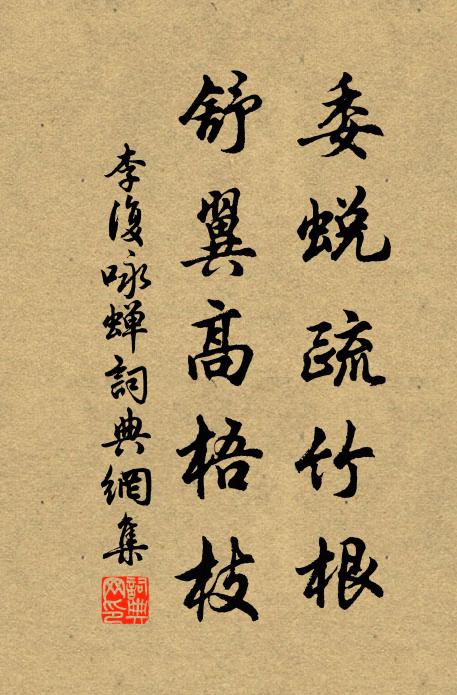 委蜕疏竹根
舒翼高梧枝
李復咏蝉詞典網集
詞典網印